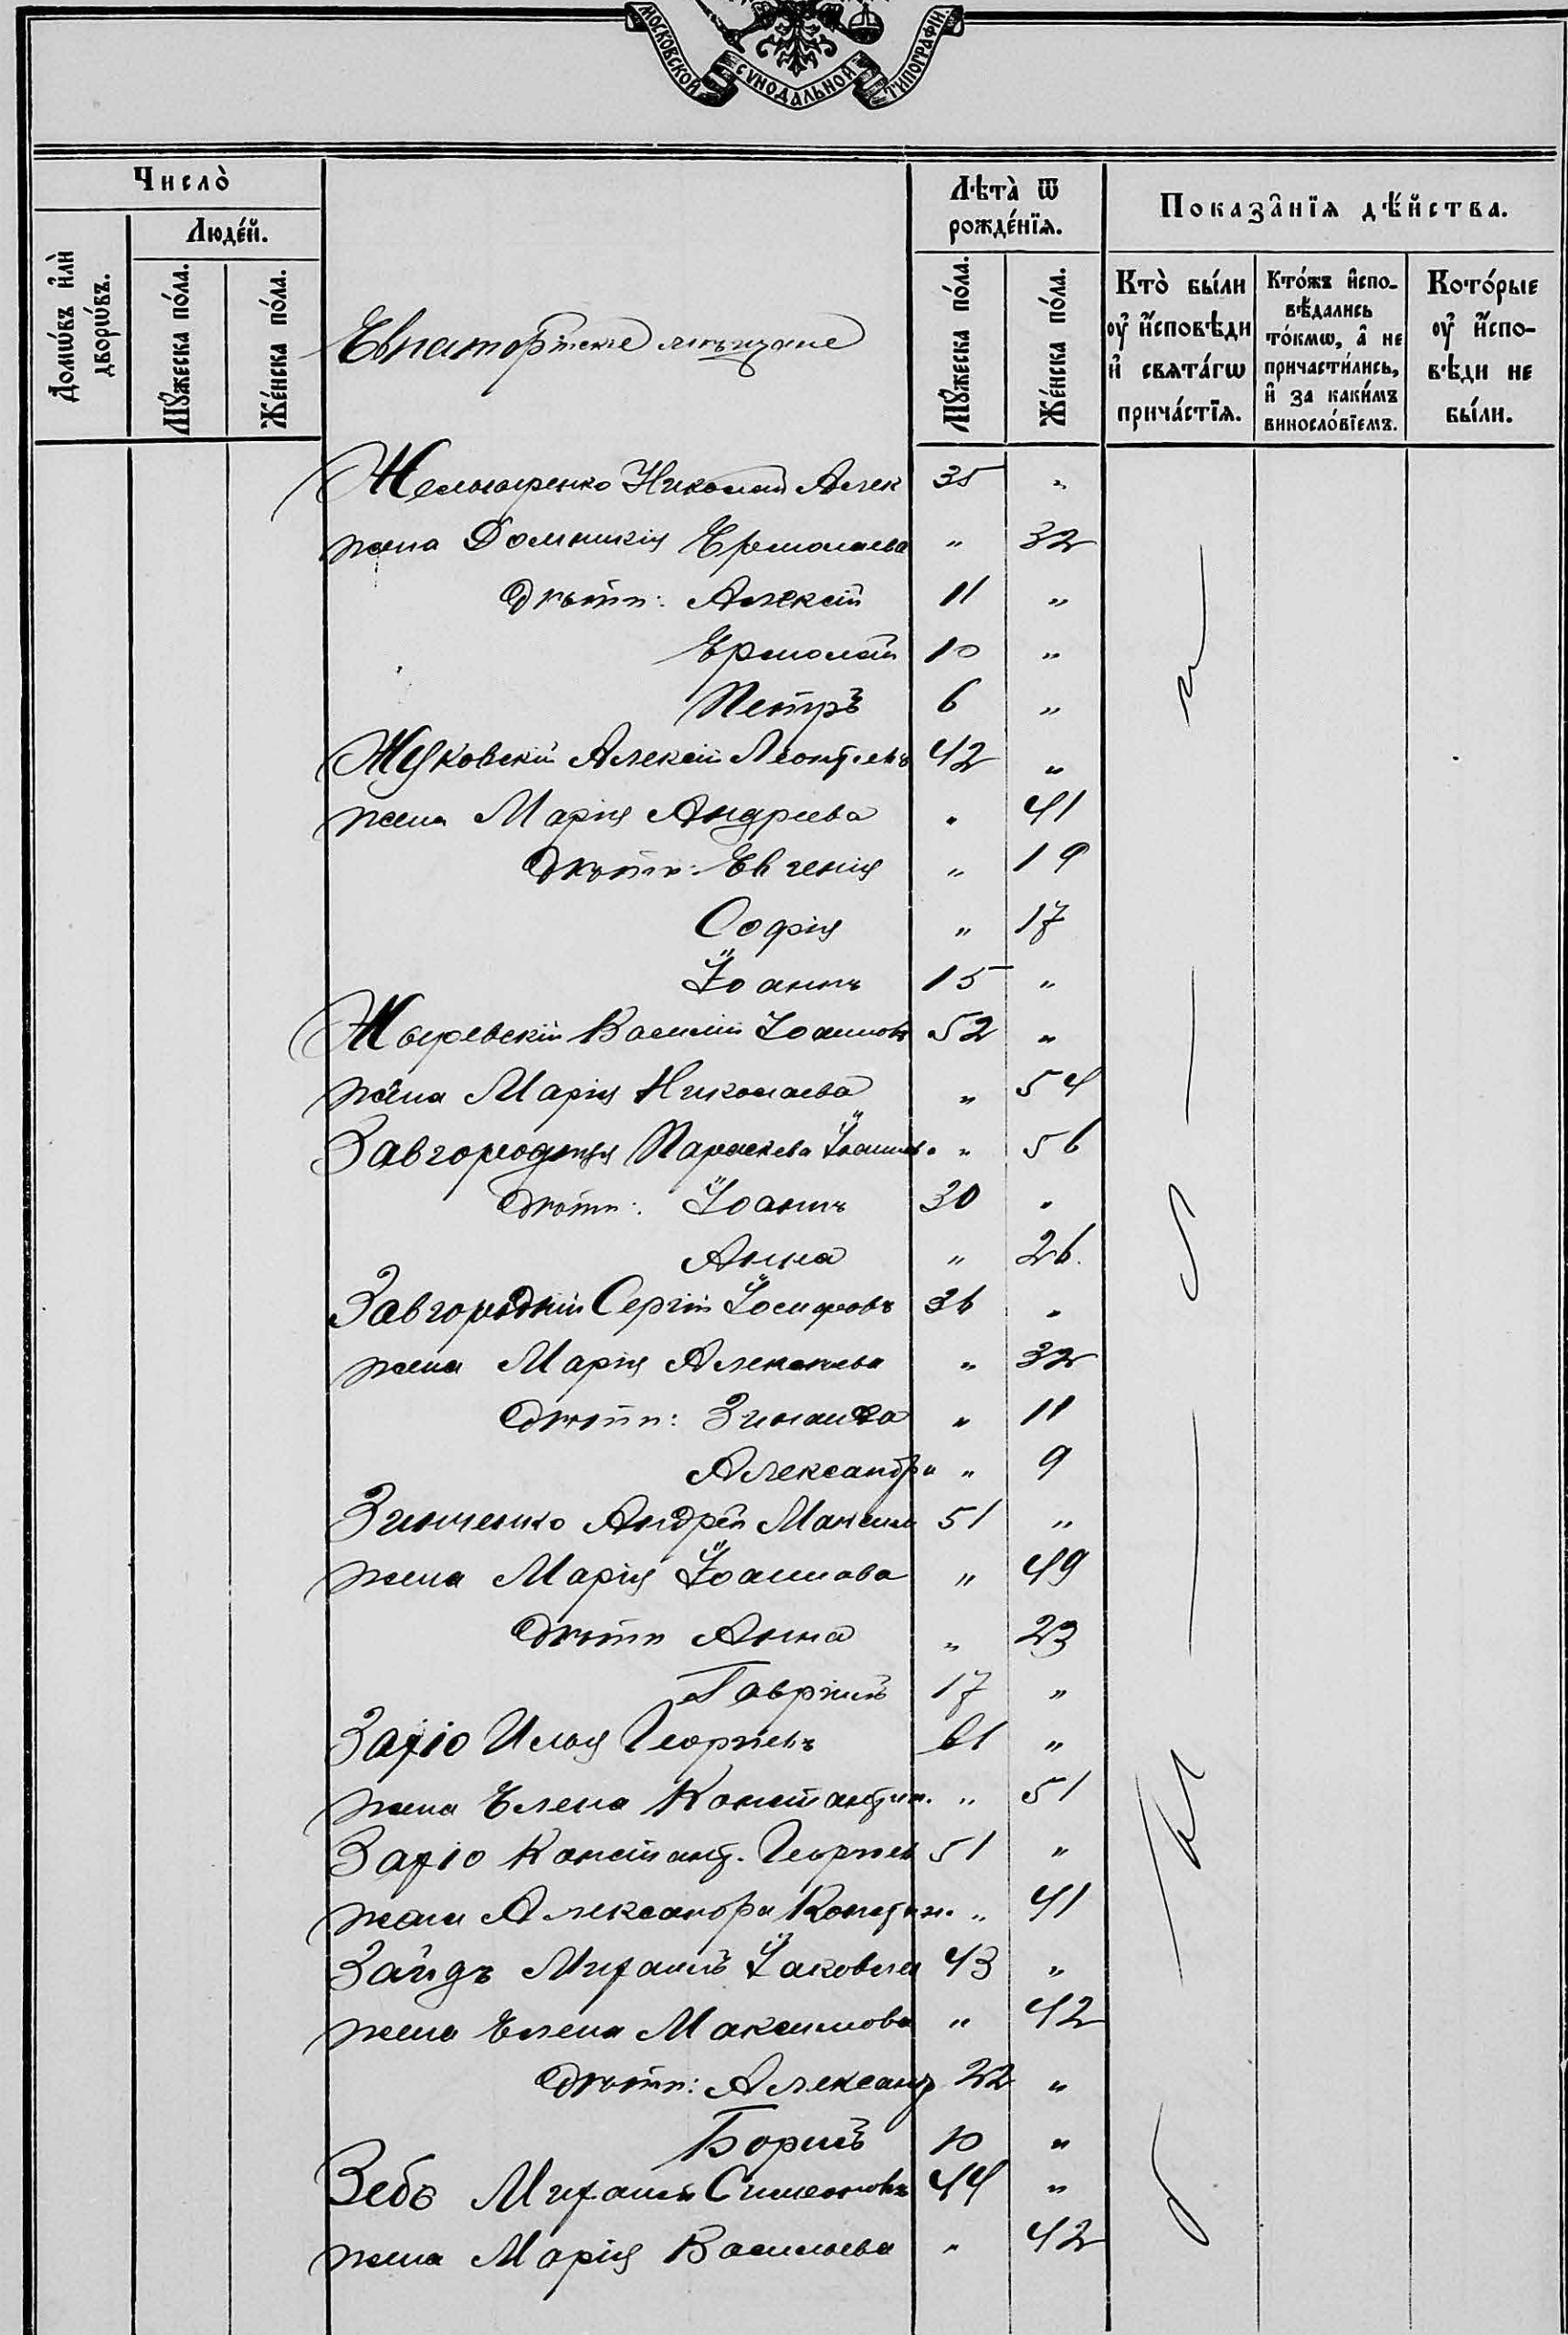 МОСКОВСКОЙ СѴНОДАЛЬНОЙ ТИПОГРАФІИ.
Число̀
Людéй.
Домѡ́въ и҆лѝ дворѡ́въ.
Мꙋ́жеска по́ла.
Же́нска по́ла.
Лѣта̀ ѿ рожде́нїѧ.
Мꙋ́жеска по́ла.
Же́нска по́ла.
Показа̑нїѧ дѣ́йства.
Кто̀ бы́ли ᲂу҆ и҆́сповѣди и҆ свѧта́гѡ прича́стїѧ.
Кто́жъ и҆сповѣ́дались то́кмѡ, а҆ не причасти́лись, и҆ за каки́мъ винословїемъ.
Кото́рые ᲂу҆ и҆́сповѣди не бы́ли.
Евпаторійские мѣщане
Николай Алек 35 "
жена Домникія Ермолаева " 32
дѣти: Алексій 11 "
Ермолай 10 "
Петръ 6 "
Жуковскій Алексій Леонтіевъ 42 "
жена Марія Андреева " 41
дѣти: Евгенія " 19
Софія " 17
Іоаннъ 15 "
Василій Іоаннов 52 "
жена Марія Николаева " 54
Завгородняя Параскева Іоаннов. " 56
дѣти: Іоаннъ 30 "
Анна " 26.
Завгородній Сергій Іосифовъ 36 "
жена Марія Алексіева " 32
дѣти: Зинаида " 11
Александра " 9
Зинченко Андрей Максим 51 "
жена Марія Іоаннова " 49
дѣти Анна " 23
Гавріилъ 17 "
Захіо Илья Георгіевъ 61 "
жена Елена Константин. " 51
Захіо Констант. Георгіев 51 "
жена Александра Констан. " 41
Заидъ Михаилъ Іаковлев 43 "
жена Елена Максимова " 42
дѣти: Александ 22 "
Борисъ 10 "
Зебъ Михаилъ Симеоновъ 44 "
жена Марія Васильева " 42